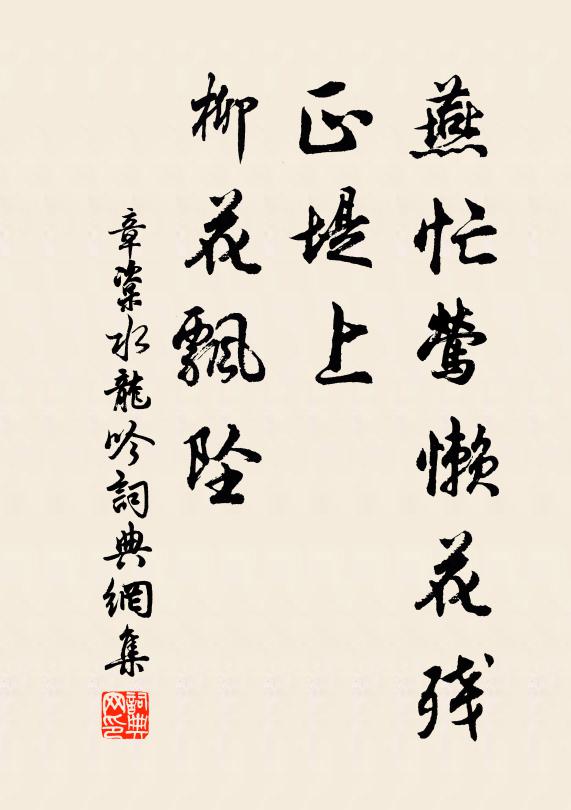 燕忙鶯懶花残
正堤上
柳花飄坠
章楶水龍吟詞典網集
詞典
网印